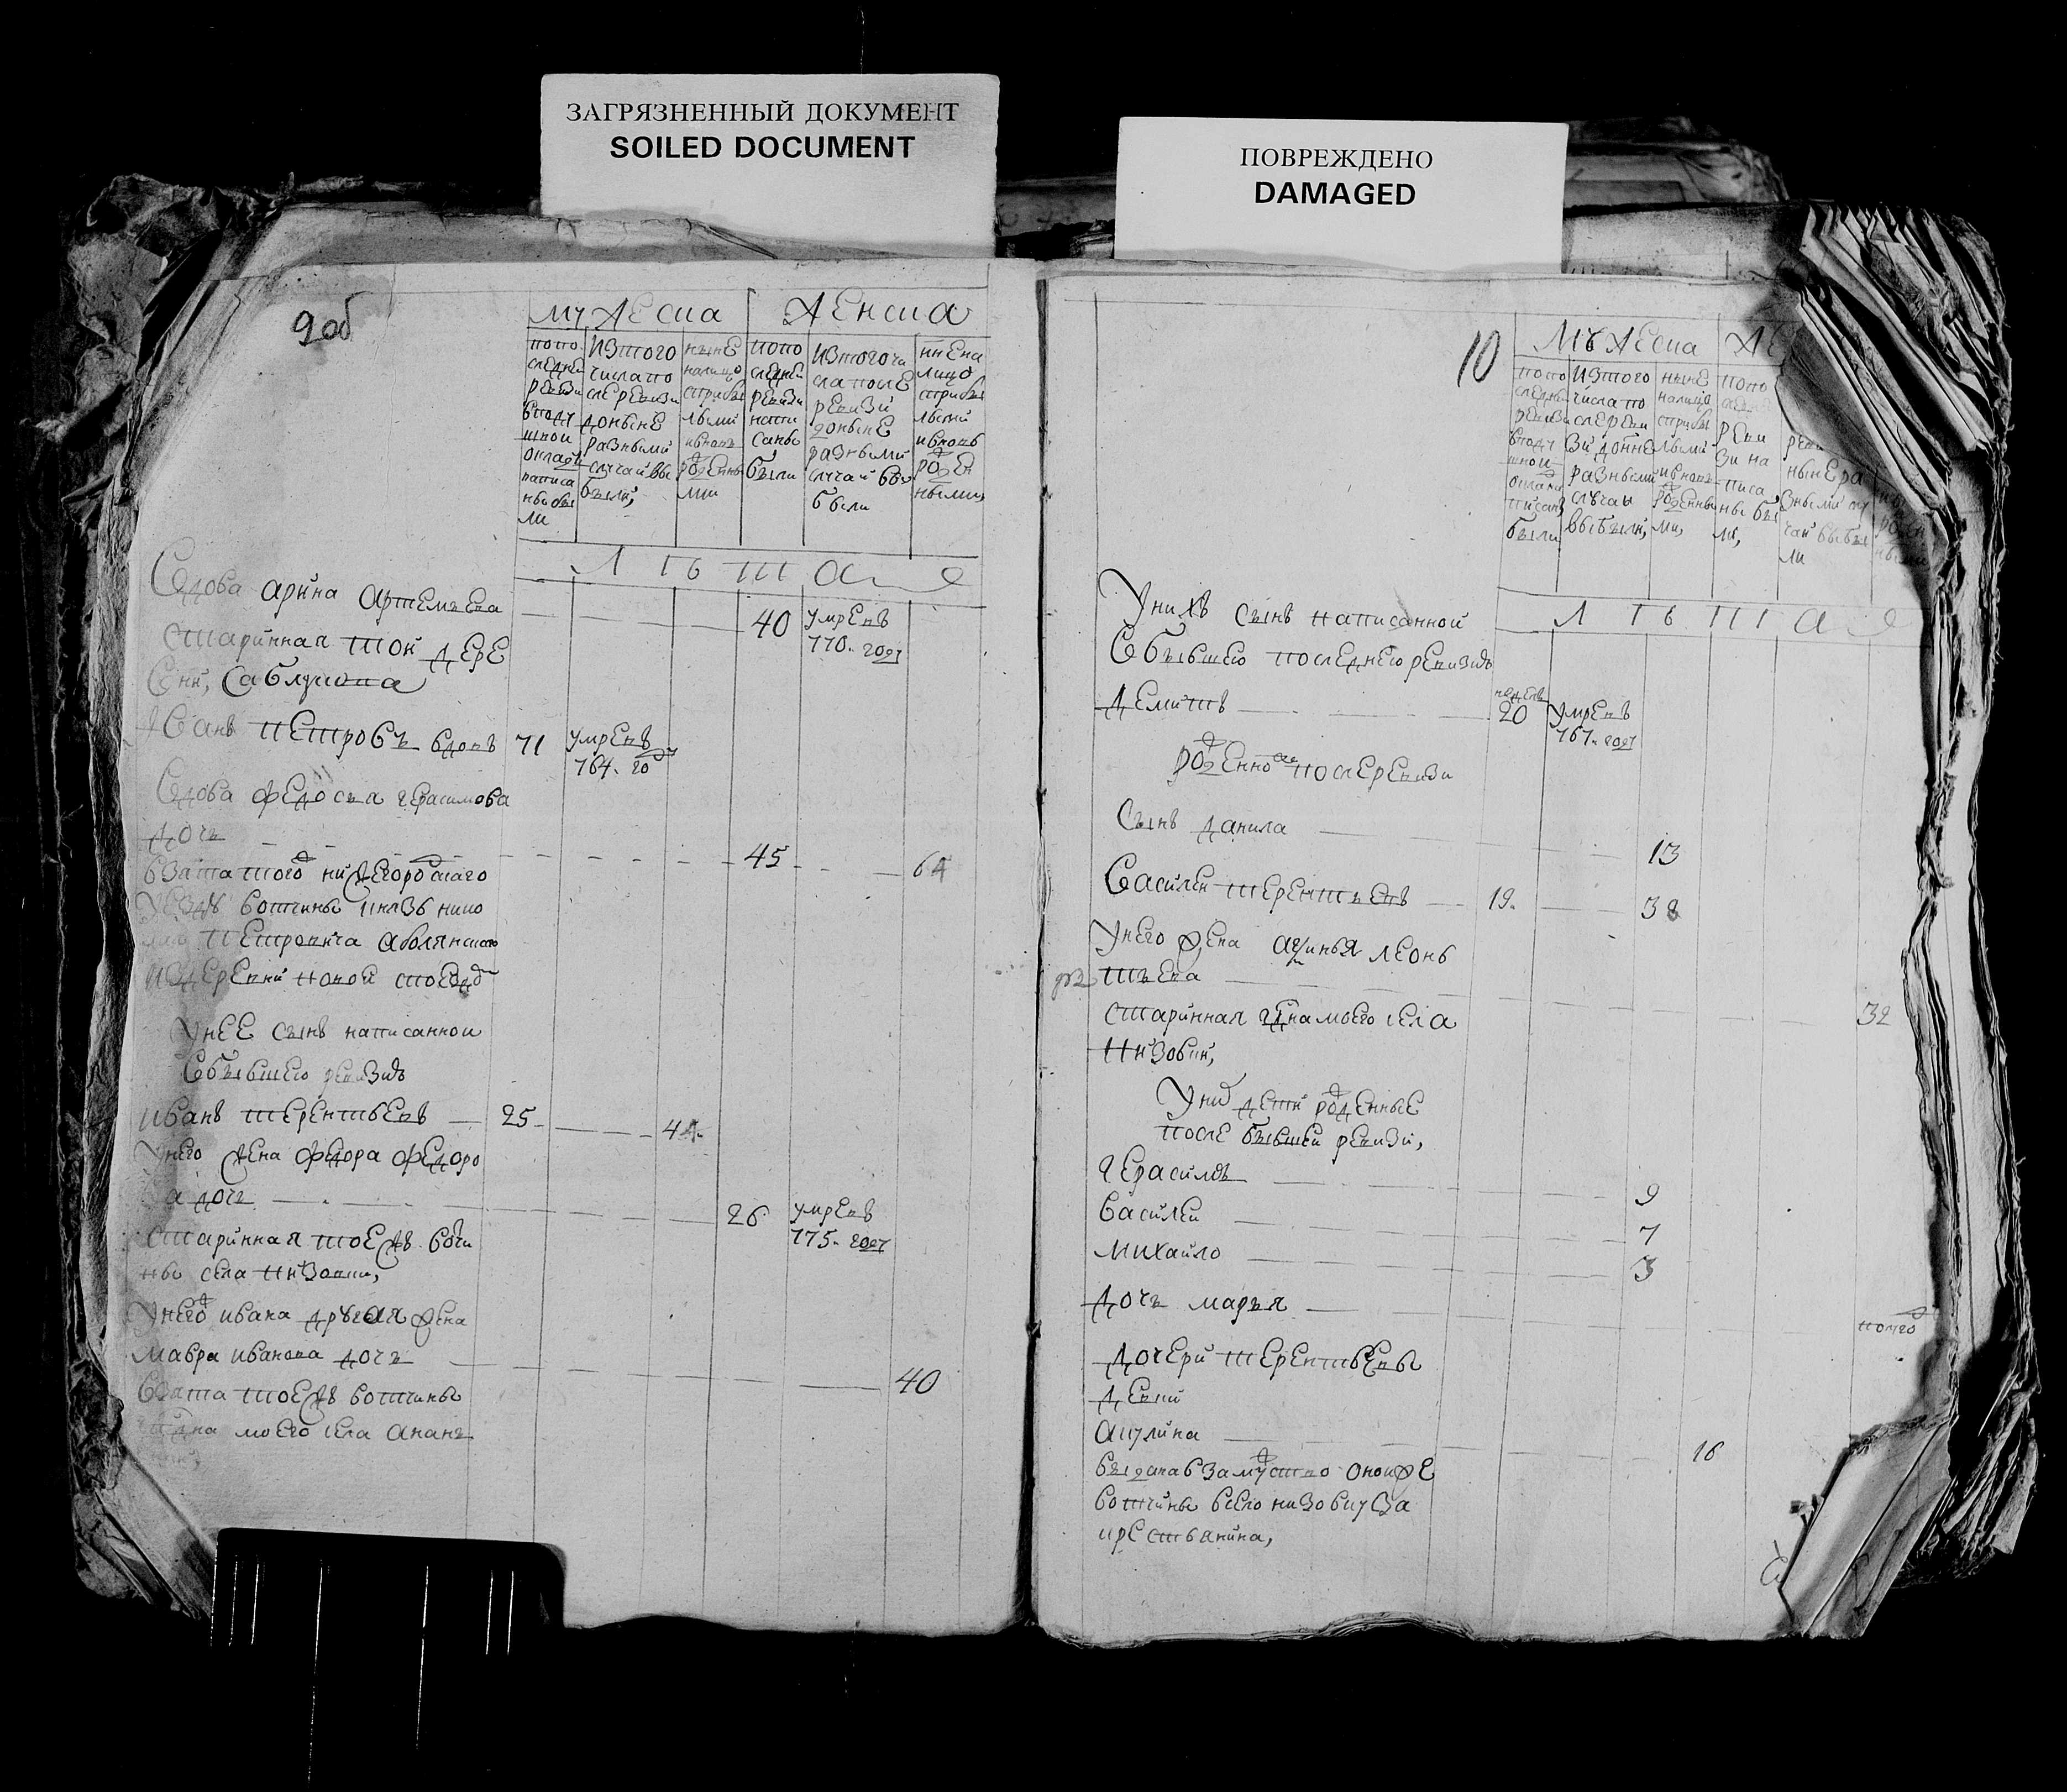 ЗАГРЯЗНЕННЫЙ ДОКУМЕНТ
SOILED DOCUMENT
ПОВРЕЖДЕНО
DAMAGED
9 об
мужеска женска
попо
следней
ревизи
вподу
шной
окладъ
написа
ны бы
ли
изтого
числапо
слеревизи
доныне
разными
случаи вы
были,
ныне
налицо
сприбы
лыми
ивновь
рожденны
ми
попо
следней
ревизи
напи
саны
были
изтогочи
сла после
ревизи
доныне
разными
случаи вы
были
нынена
лицо
сприбы
лыми
ивновь
рожден
ными,
Л ѣ т а
Вдова арина артемьева 40 умревъ
770. году
старинная той дере
вни,
Иванъ петровъ вдовъ 71 умревъ
764. году
Вдова федосья герасимова
дочь 45 64
взята того нижегородскаго
уезду вотчины князь
петровича оболянскаго
издеревни новой
унее сынъ написанной
вбывшею ревизию
иванъ терентьевъ 25 44
унего жена федора федоро
ва дочь 26 умревъ
775. году
старинная тоежъ вочи
ны села низовки,
унегожъ ивана другая жена
мавра иванова дочь 40
взята тоежъ вотчины
моего села
10
Мужеска же
попо
следней
ревизи
вподу
шной
окладъ
написаны
были
изтого
числа по
слереви
зи доныне
разными
случаи
выбыли,
ныне
налицо
сприбы
лыми
ивновь
рожденны
ми,
попо
реви
зи на
писа
ны бы
ли,
ныне ра
зными слу
чаи выбы
ли
Л ѣ т а
Унихъ сынъ написанной
вбывшею последнею ревизию
недель
демитъ 20 умревъ
767. году
рожденной послеревизи
Сынъ данила 13
Василей терентьевъ 19. 38
Унего жена леонь
тьева
старинная моего села 32
низовки,
Унихъ дети рожденные
после бывшей ревизи,
герасимъ 9
василей 7
михайло 3
дочь марья полго
дочери терентьевы
девки
акулина 16
выдана взамужство оной же
вотчины всело низовку за
крестьянина,